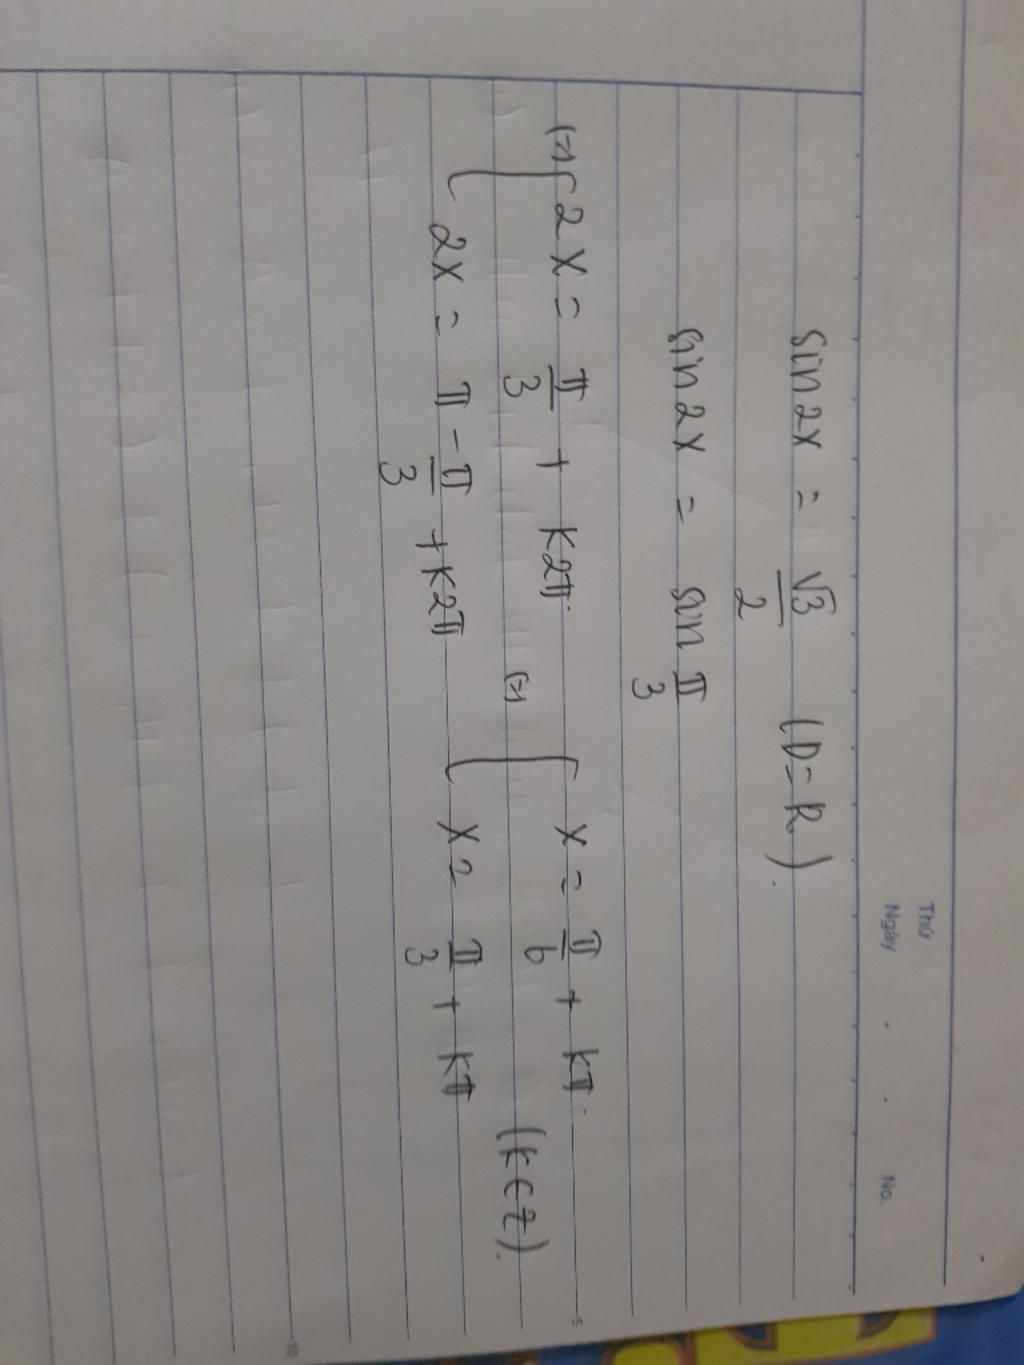 Thứ
Ngày . . No.
sin2x = √3/2 (D=R).
sin2x = sin π/3
(=) [ 2x = π/3 + k2π. (=) [ x = π/6 + kπ.
2x = π - π/3 + k2π x = π/3 + kπ (k∈Z).
5
10